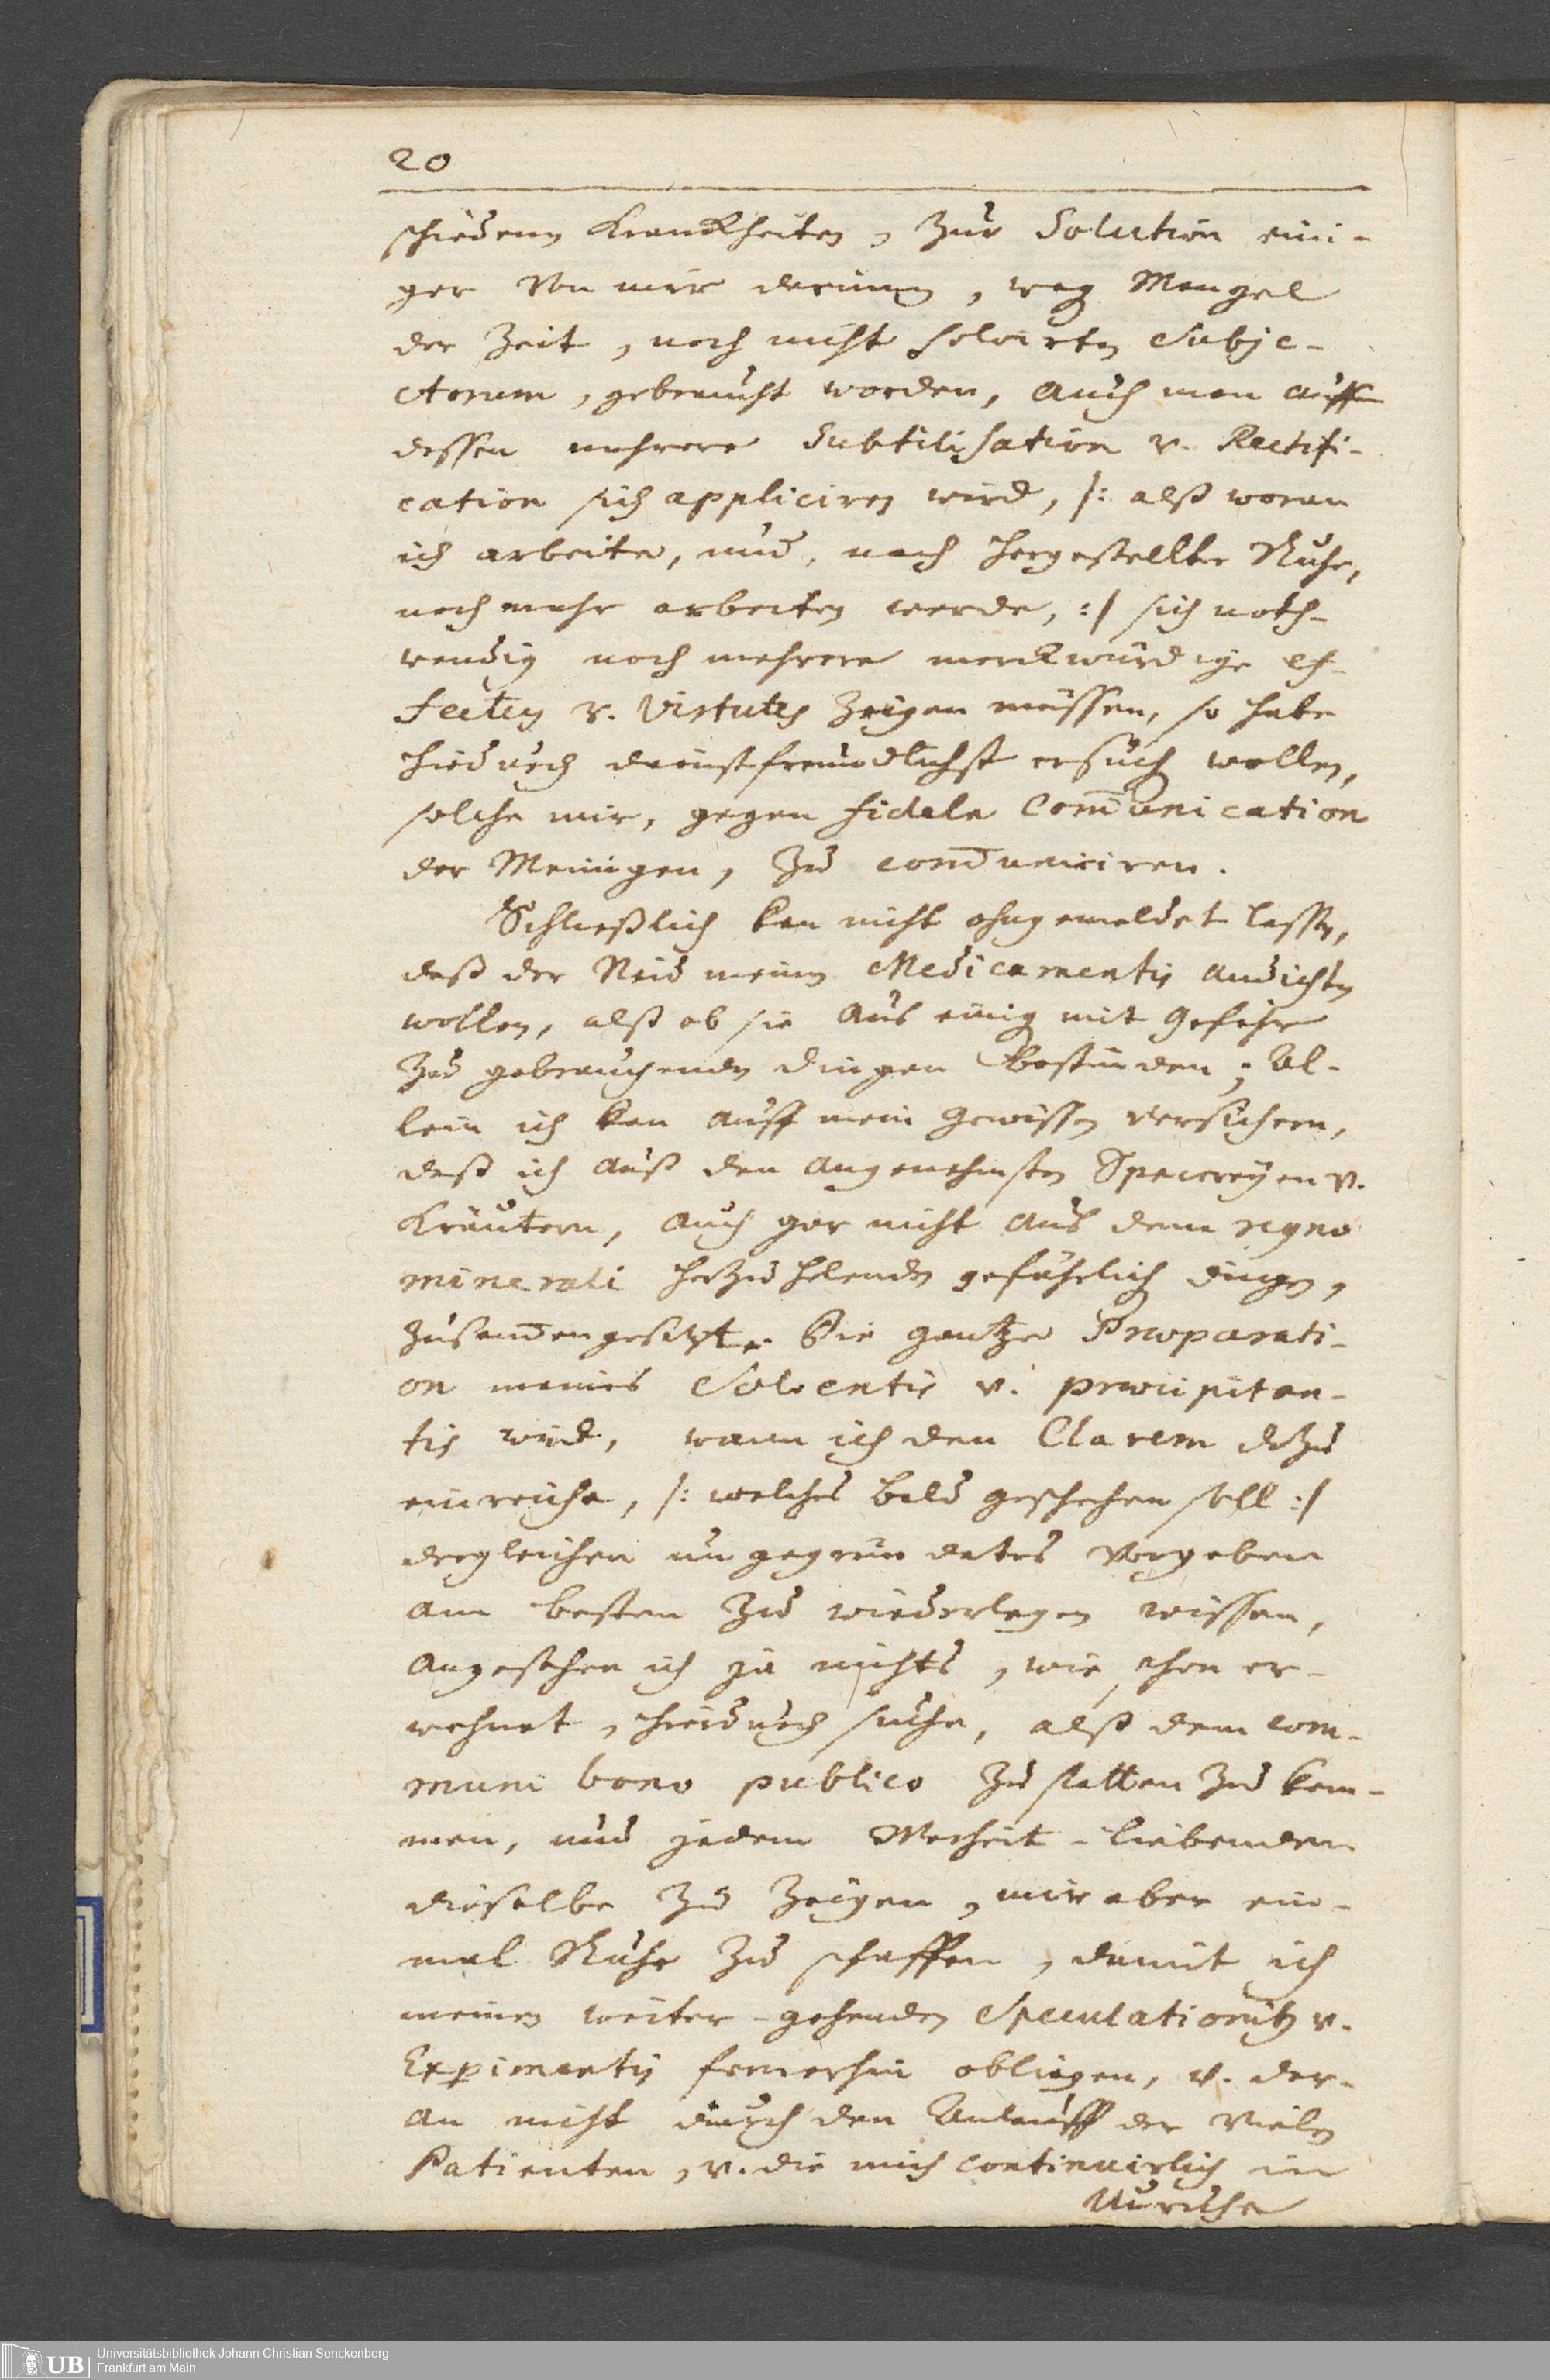 20
schiedenen Kranckheiten, zur Solution eini-
ger von mir darinnen, weg Mangel
der Zeit, noch nicht solvirten Subje-
ctorum, gebraucht worden, auch man auff
dessen mehrere Subtilisation v. Rectifi-
cation sich appliciren wird, /: alß woran
ich arbeite, und, nach hergestellter Ruhe,
noch mehr arbeiten werde, :/ sich noth-
wendig noch mehrere merckwürdige Ef-
fectus v. Virtutes zeigen müssen, so habe
hiedurch dienstfreundlichst ersuchen wollen,
solche mir, gegen fidele Com̄unication
der Meinigen, zu com̄uniciren.
Schließlich kan nicht ohngemeldet lassen,
daß der Neid meinen Medicamentis andichten
wollen, alß ob sie aus einig mit Gefahr
zu gebrauchenden dingen bestünden; Al-
lein ich kan auff mein Gewissen versichern,
daß ich auß den angenehmsten Specereyen v.
Kräutern, auch gar nicht aus dem regno
minerali herzuholenden gefährlich dingen,
zusam̄engesetzt. Die gantze Præparati-
on meines Solventis v. præcipitan-
tis wird, wann ich den Clavem dazu
einreiche, /: welches bald geschehen soll :/
dergleichen ungegründetes Vorgeben
am besten zu wiederlegen wissen,
angesehen ich ja nichts, wie schon er-
wehnet, hiedurch suche, alß dem com-
muni bono publico zu statten zu kom-
men, und jedem Warheit-liebenden
dieselbe zu zeigen, mir aber ein-
mal Ruhe zu schaffen, damit ich
meinen weiter-gehenden Speculationib9 v.
Experimentis fernerhin obliegen, v. dar-
an nicht durch den Anlauff der vielen
Patienten, v. die mich continuirlich in
Unruhe
UB
Universitätsbibliothek Johann Christian Senckenberg
Frankfurt am Main